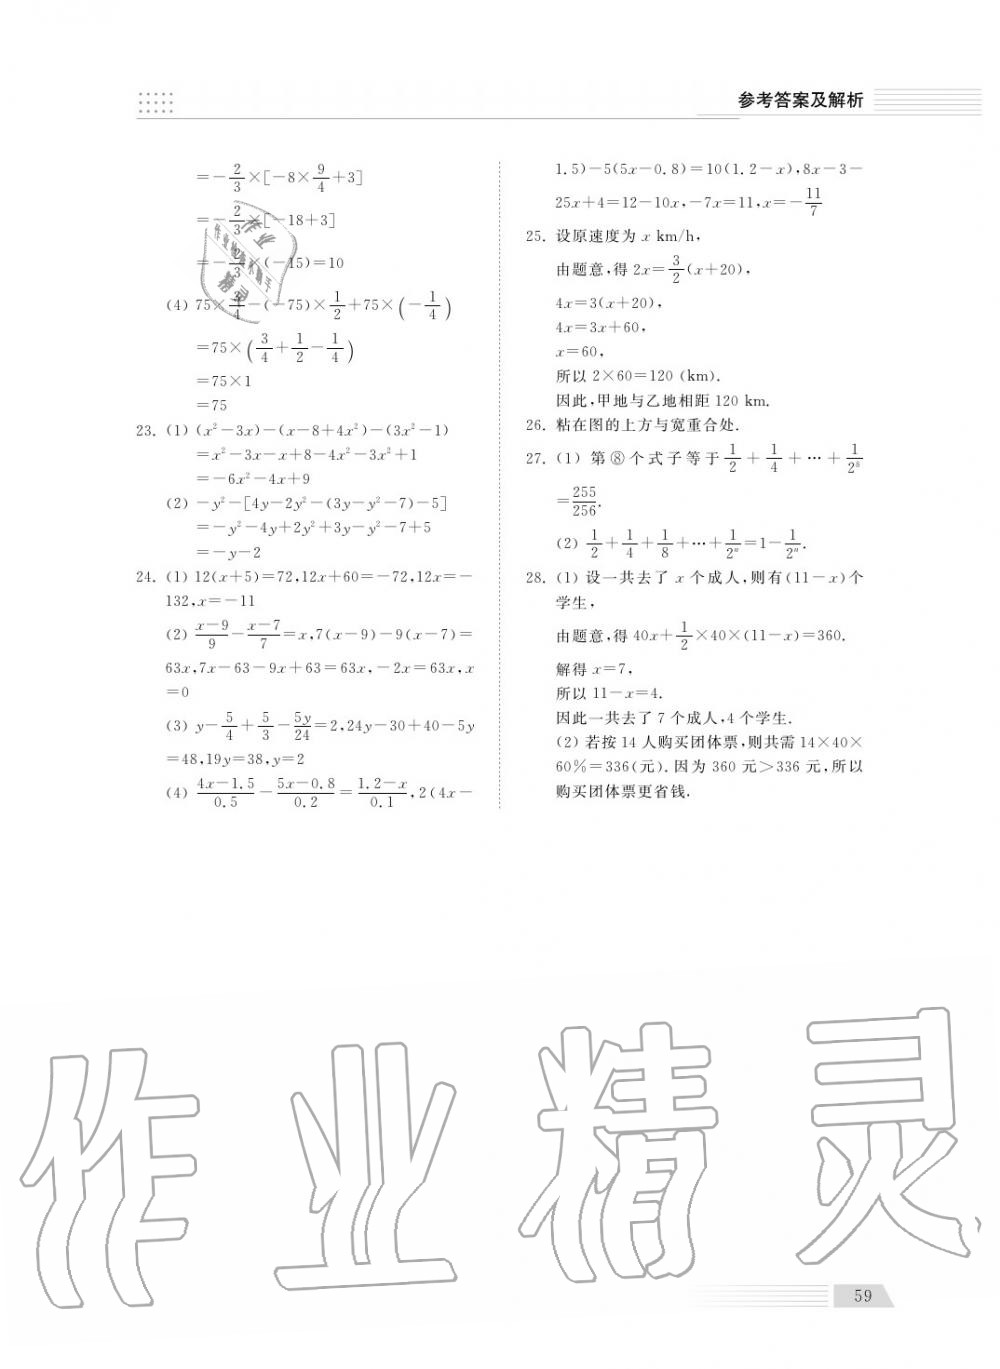 参考答案及解析
=-2/3×[-8×9/4+3]
=-2/3×[-18+3]
=-2/3×(-15)=10
(4) 75×3/4-(-75)×1/2+75×(-1/4)
=75×(3/4+1/2-1/4)
=75×1
=75
23. (1) (x²-3x)-(x-8+4x²)-(3x²-1)
=x²-3x-x+8-4x²-3x²+1
=-6x²-4x+9
(2) -y²-[4y-2y²-(3y-y²-7)-5]
=-y²-4y+2y²+3y-y²-7+5
=-y-2
24. (1) 12(x+5)=72,12x+60=-72,12x=-
132,x=-11
(2) (x-9)/9-(x-7)/7=x,7(x-9)-9(x-7)=
63x,7x-63-9x+63=63x,-2x=63x,x
=0
(3) y-5/4+5/3-5y/24=2,24y-30+40-5y
=48,19y=38,y=2
(4) (4x-1.5)/0.5-(5x-0.8)/0.2=(1.2-x)/0.1,2(4x-
1.5)-5(5x-0.8)=10(1.2-x),8x-3-
25x+4=12-10x,-7x=11,x=-11/7
25. 设原速度为 x km/h,
由题意,得 2x=3/2(x+20),
4x=3(x+20),
4x=3x+60,
x=60,
所以 2×60=120 (km).
因此,甲地与乙地相距 120 km.
26. 粘在图的上方与宽重合处.
27. (1) 第⑧个式子等于 1/2+1/4+…+1/2⁸
=255/256.
(2) 1/2+1/4+1/8+…+1/2ⁿ=1-1/2ⁿ.
28. (1) 设一共去了 x 个成人,则有(11-x)个
学生,
由题意,得 40x+1/2×40×(11-x)=360.
解得 x=7,
所以 11-x=4.
因此一共去了 7 个成人,4 个学生.
(2) 若按 14 人购买团体票,则共需 14×40×
60%=336(元).因为 360 元>336 元,所以
购买团体票更省钱.
作业精灵
59